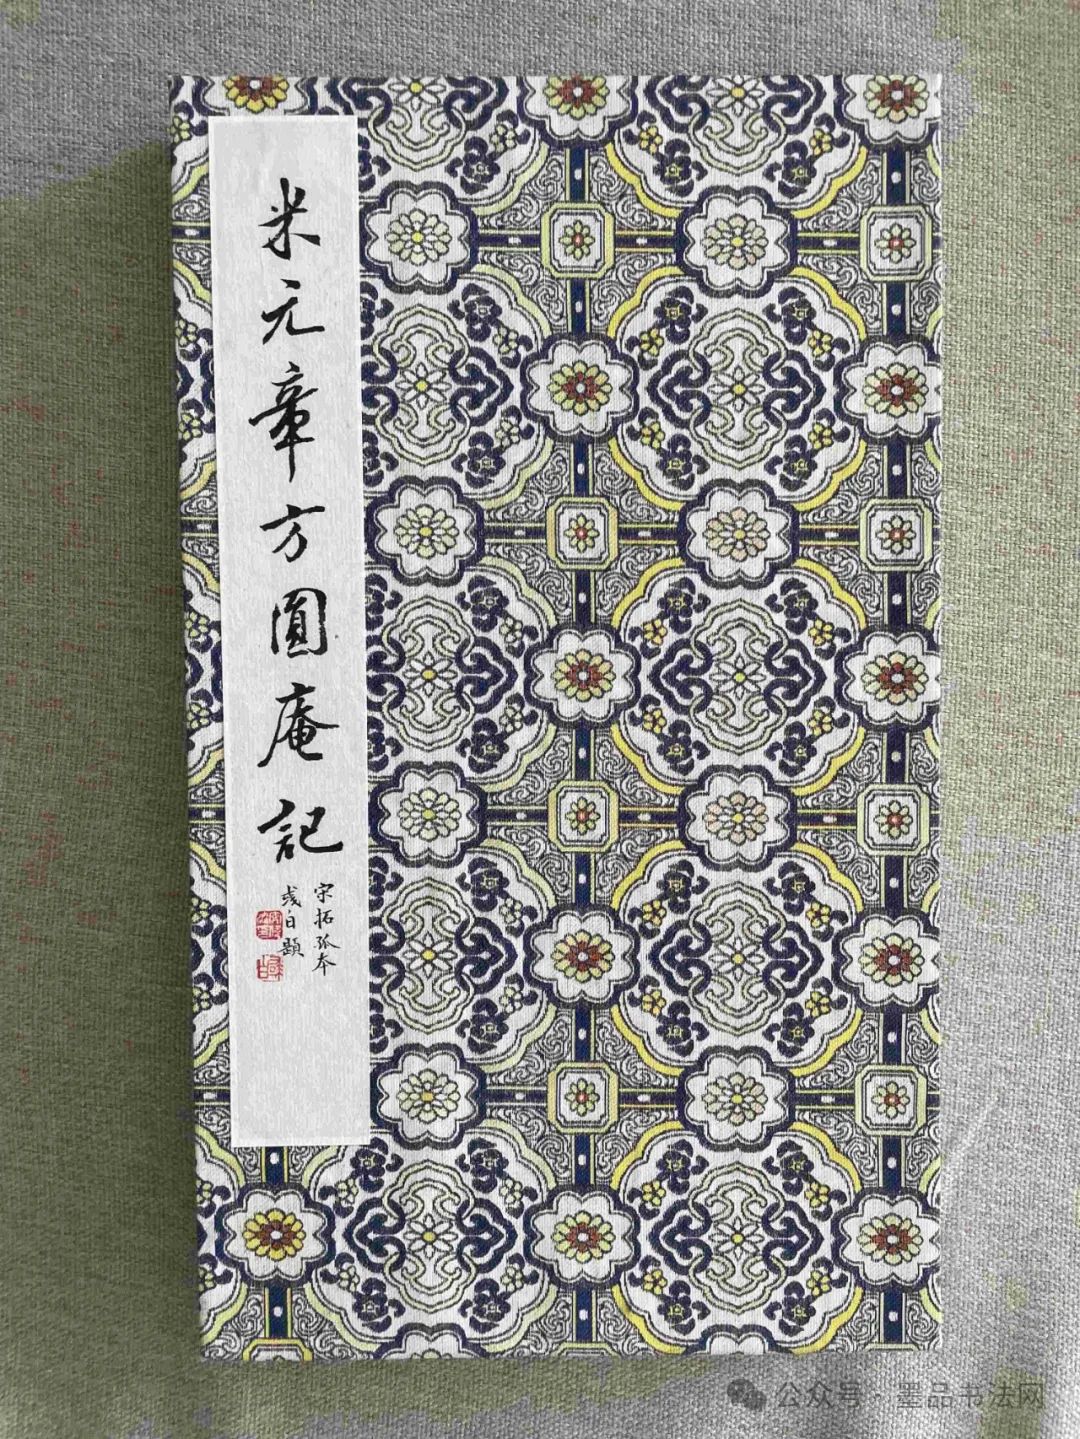 米元章方圓庵記
宋拓孤本
戔白題
公众号·墨品书法网